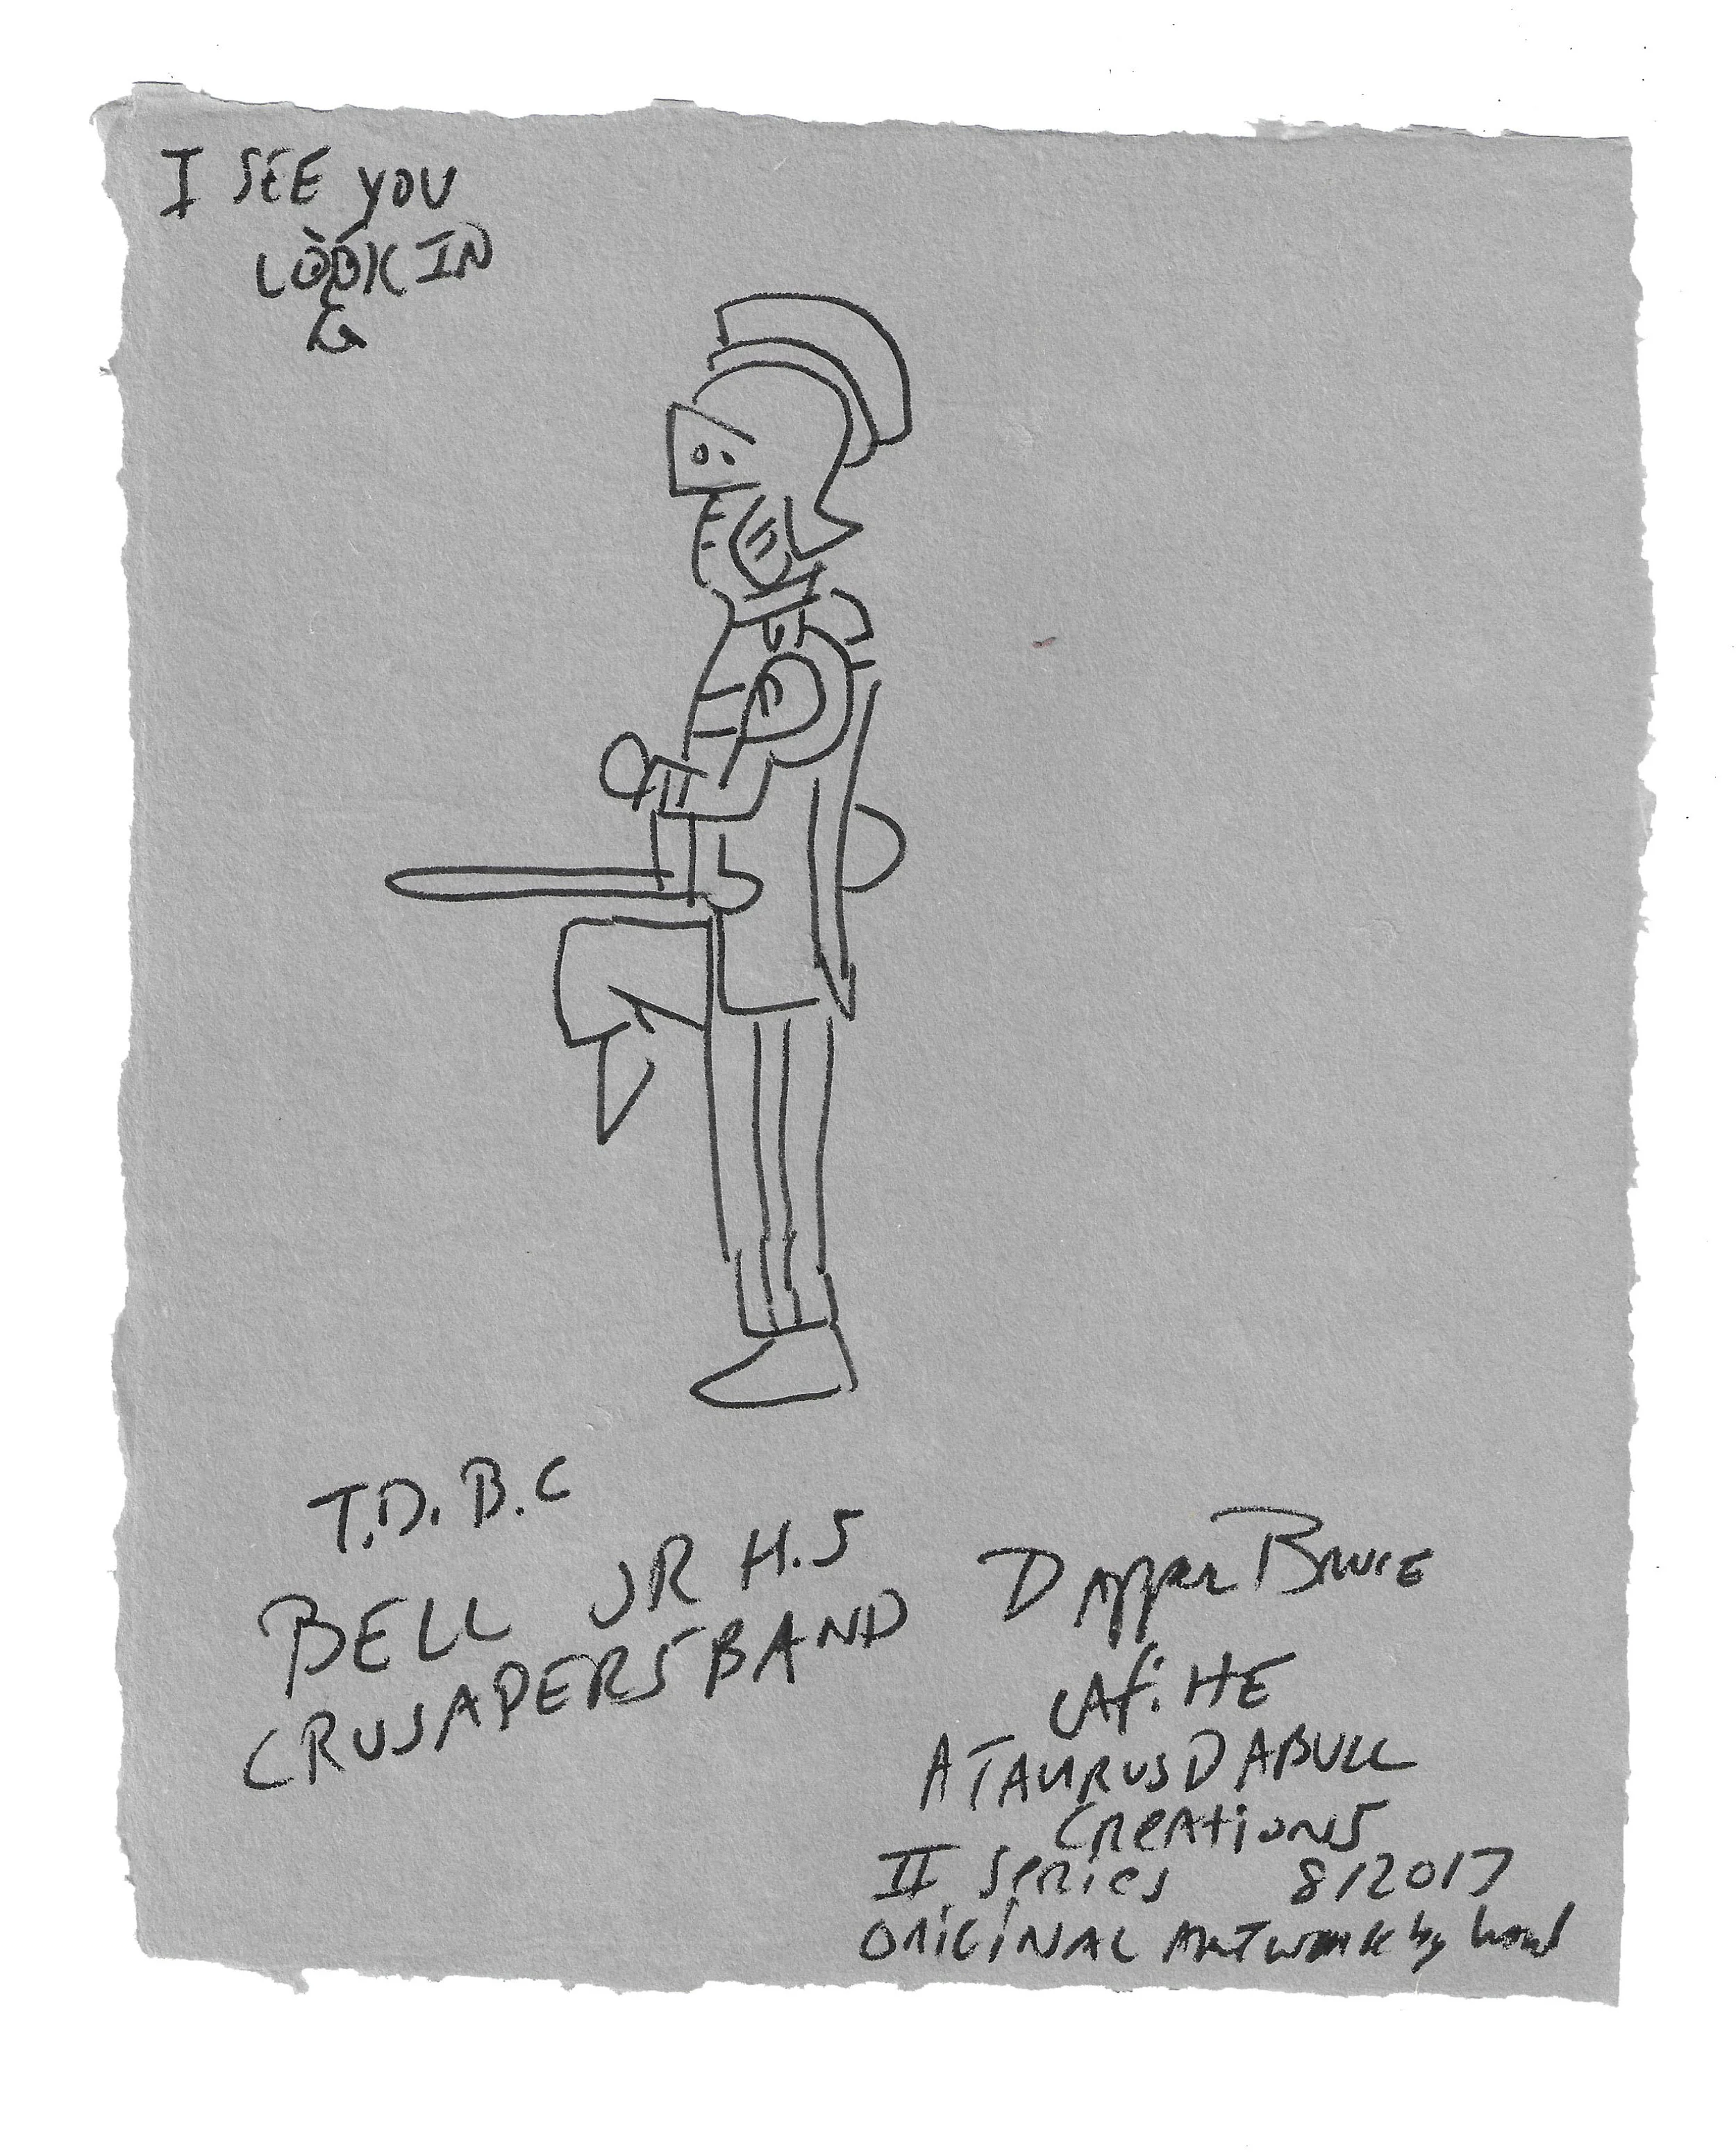 I SEE YOU
LOOKIN
G
T.D.B.C
BELL JR H.S
CRUSADERS BAND
Dapper Bruce
Lafitte
A TAURUS DABULL
Creations
II Series 8/2017
ORIGINAL Artwork by hand